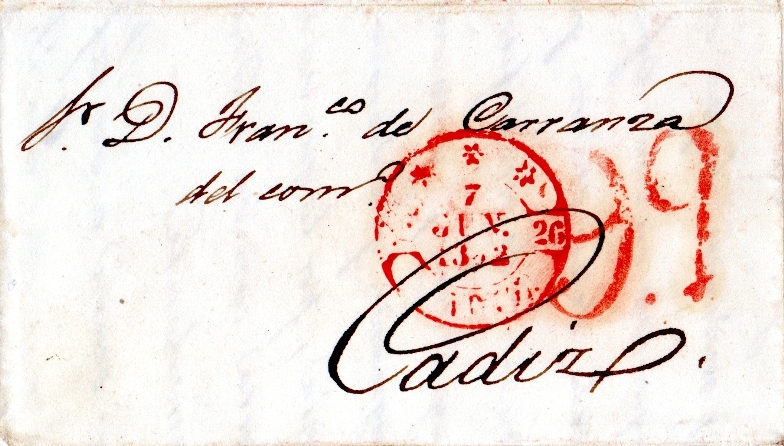 Sr. D. Fran.co de Carranza
del com.o
7
JUN.
26
Cadiz.